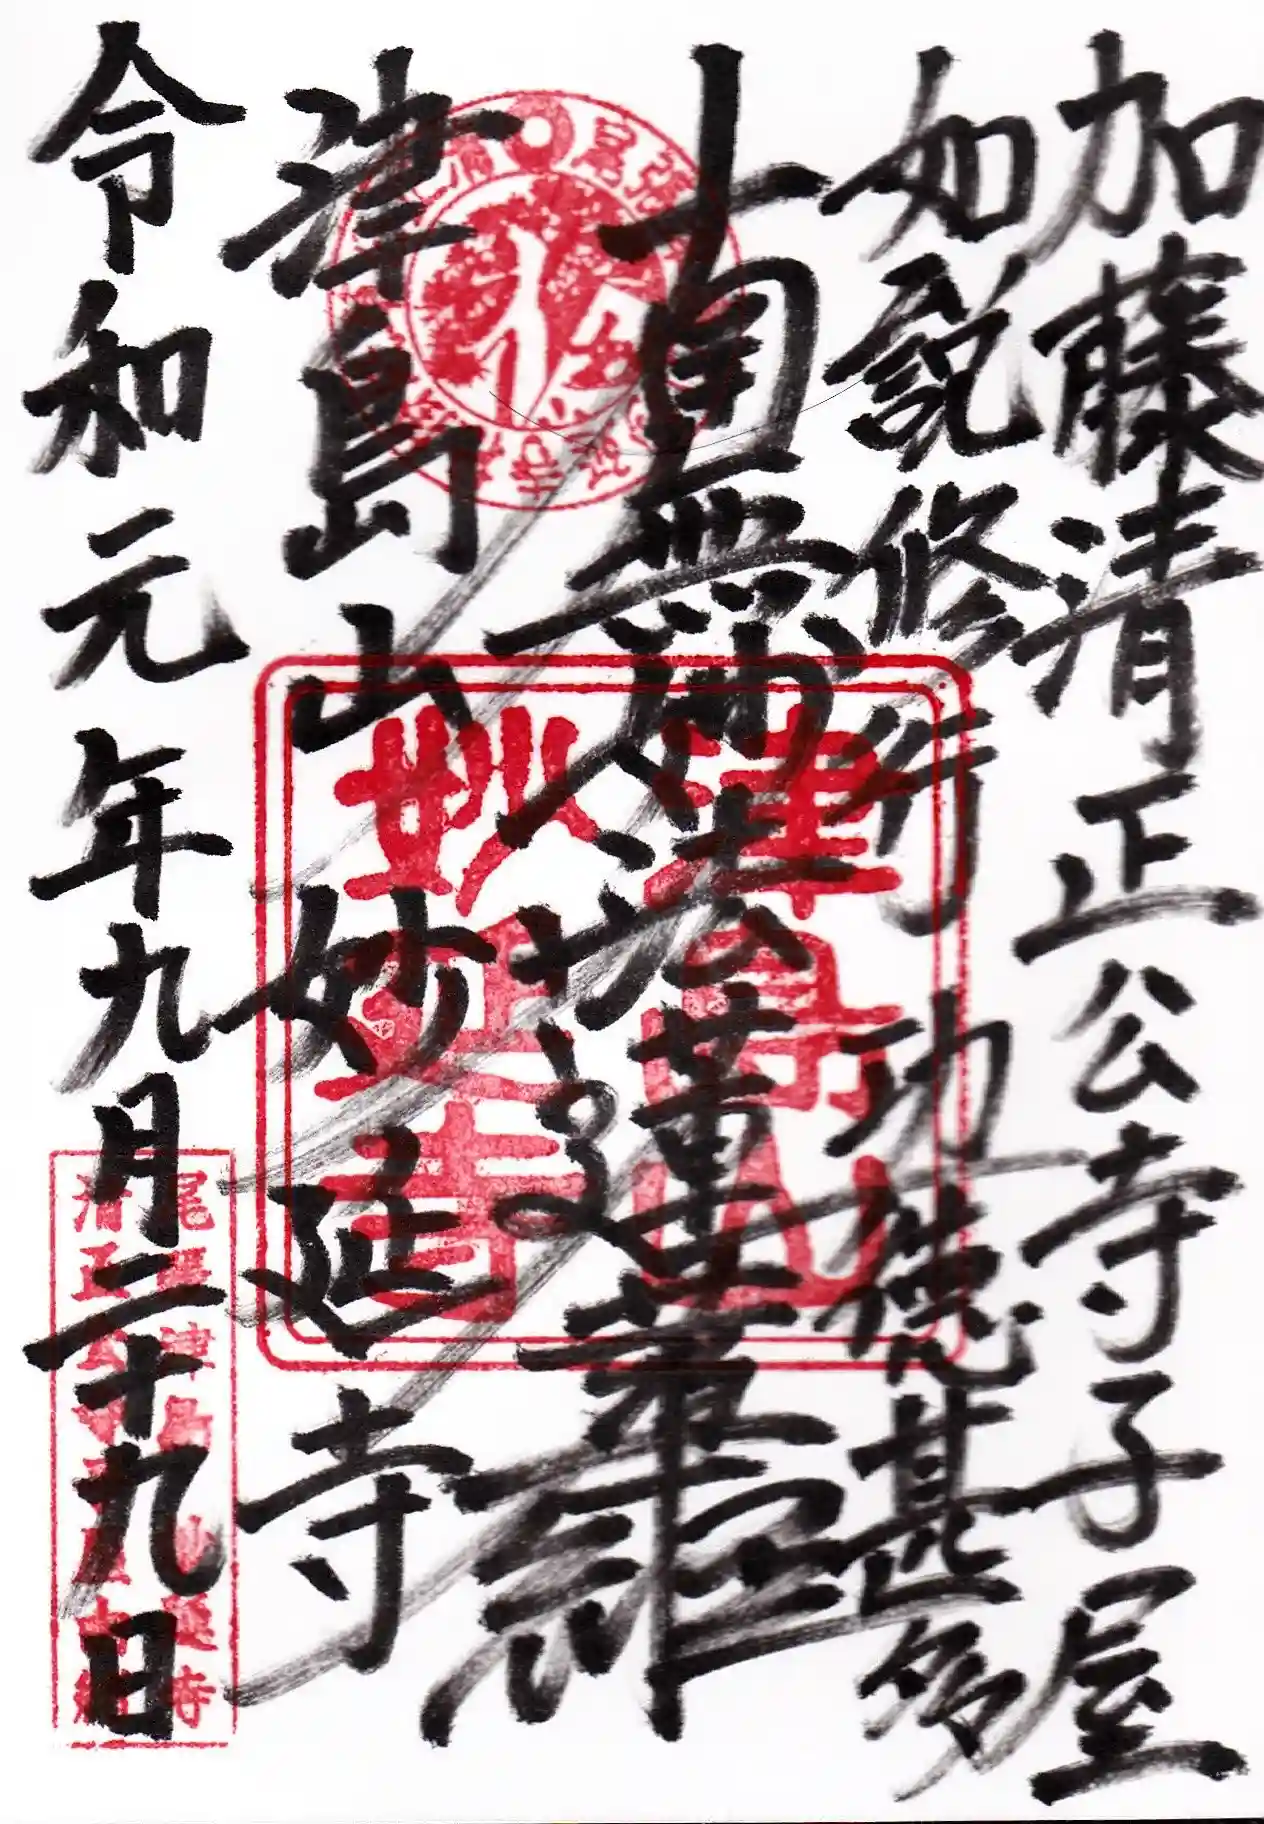 加藤清正公寺子屋
如説修行功徳甚多
南無妙法蓮華経
津島山 妙延寺
令和元年九月二十九日
津島山
妙延寺